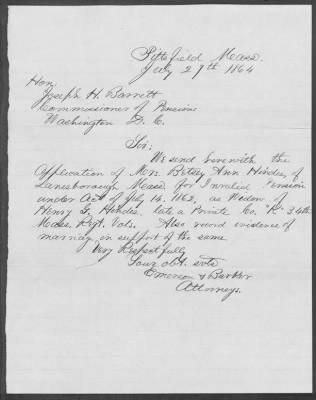 Pittsfield Mass.
July 29th 1864
Hon.
Joseph H. Barrett
Commissioner of Pensions
Washington D. C.
Sir:
We send herewith the
Application of Mrs. Betsey Ann Hindes, of
Lanesborough Mass. for Invalid Pension
under Act of July 14. 1862, as Widow of
Henry G. Hindes, late a Private Co. "K" 34th
Mass. Regt. Vols. Also record evidence of
marriage in support of the same
Very Respectfully
Your obt. svts
Emerson & Barker
Attorneys.